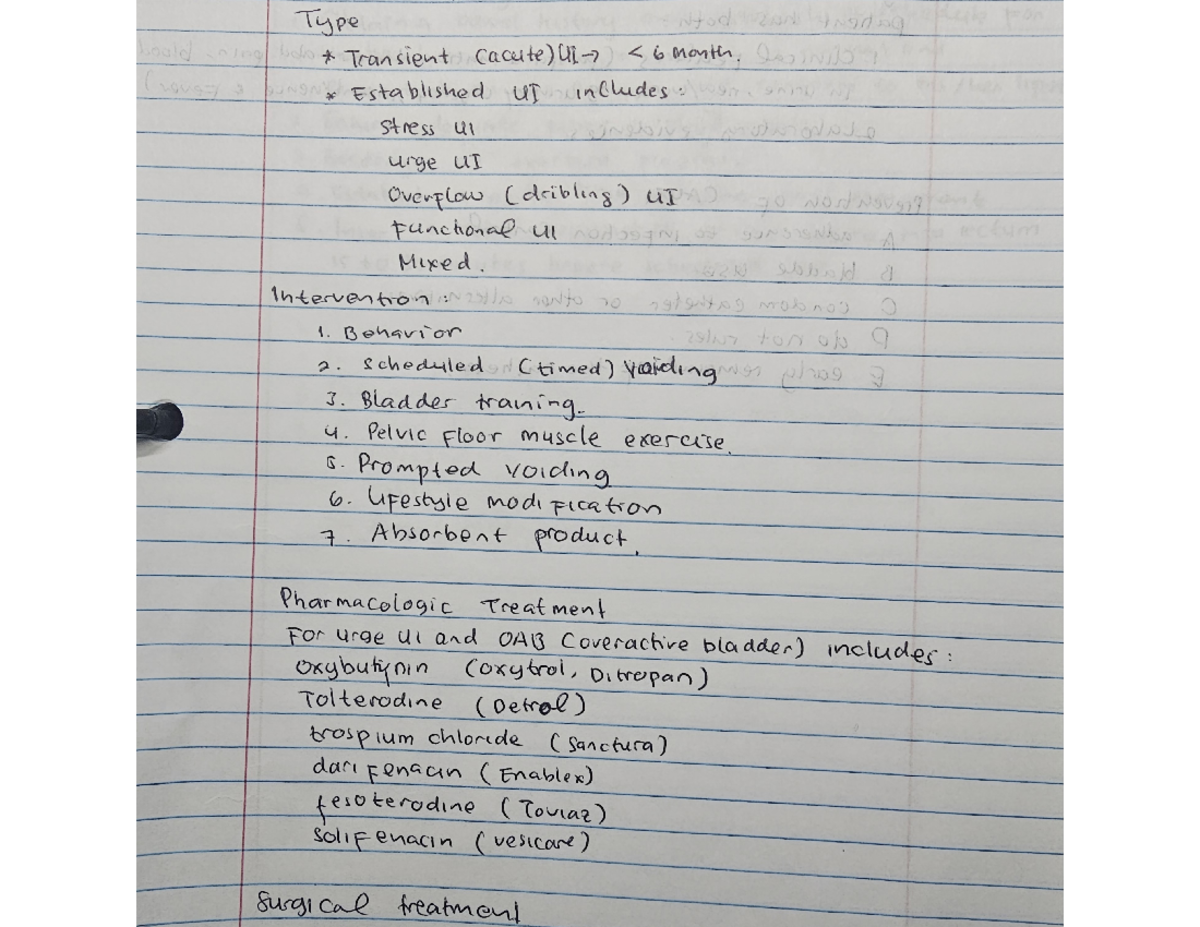 Type
* Transient (acute) UI → < 6 month.
* Established UI includes:
Stress UI
urge UI
Overflow (dribling) UI
Functional UI
Mixed.
Intervention:
1. Behavior
2. Scheduled (timed) voiding
3. Bladder training.
4. Pelvic Floor muscle exercise.
5. Prompted voiding
6. Lifestyle modification
7. Absorbent product.
Pharmacologic Treatment
For urge UI and OAB (overactive bladder) includes:
Oxybutynin (Oxytrol, Ditropan)
Tolterodine (Detrol)
trospium chloride (Sanctura)
darifenacin (Enablex)
fesoterodine (Toviaz)
Solifenacin (vesicare)
Surgical treatment